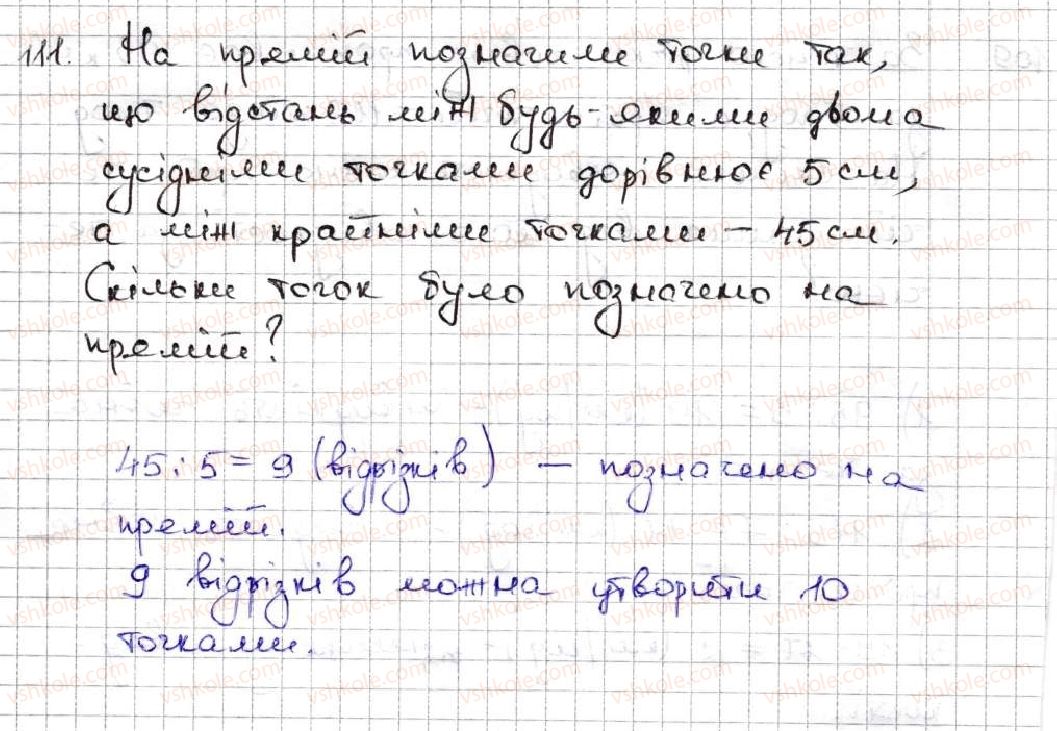 111. На прямій позначили точки так,
що відстань між будь-якими двома
сусідніми точками дорівнює 5 см,
а між крайніми точками – 45 см.
Скільки точок було позначено на
прямій?
45 : 5 = 9 (відрізків) – позначено на
прямій.
9 відрізків можна утворити 10
точками.